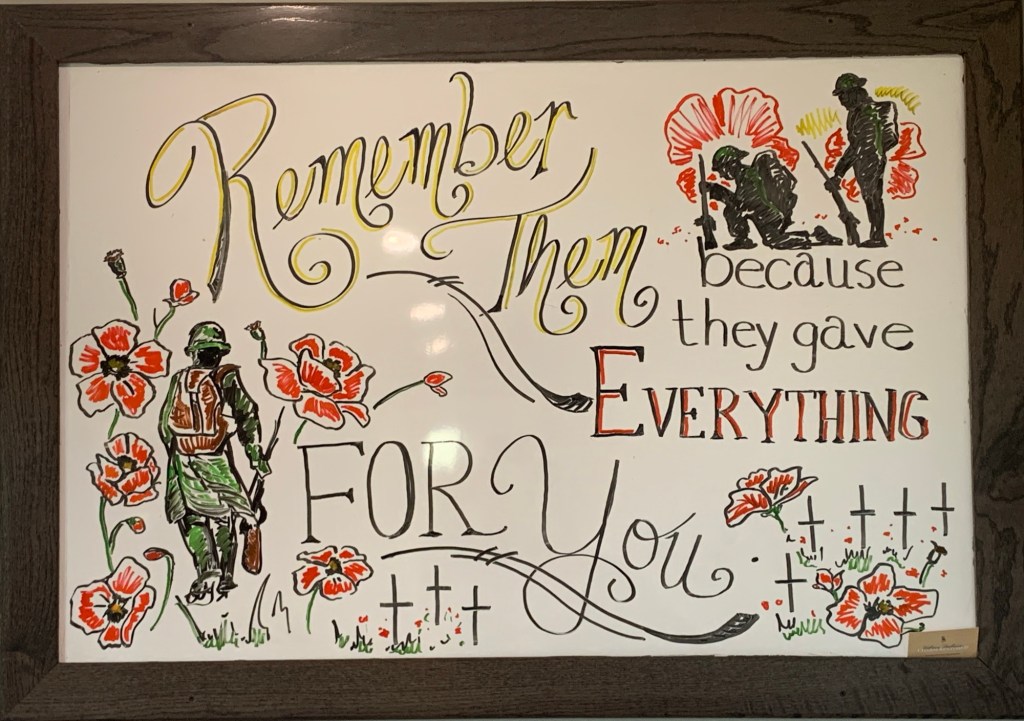 Remember
Them
because
they gave
EVERYTHING
FOR You